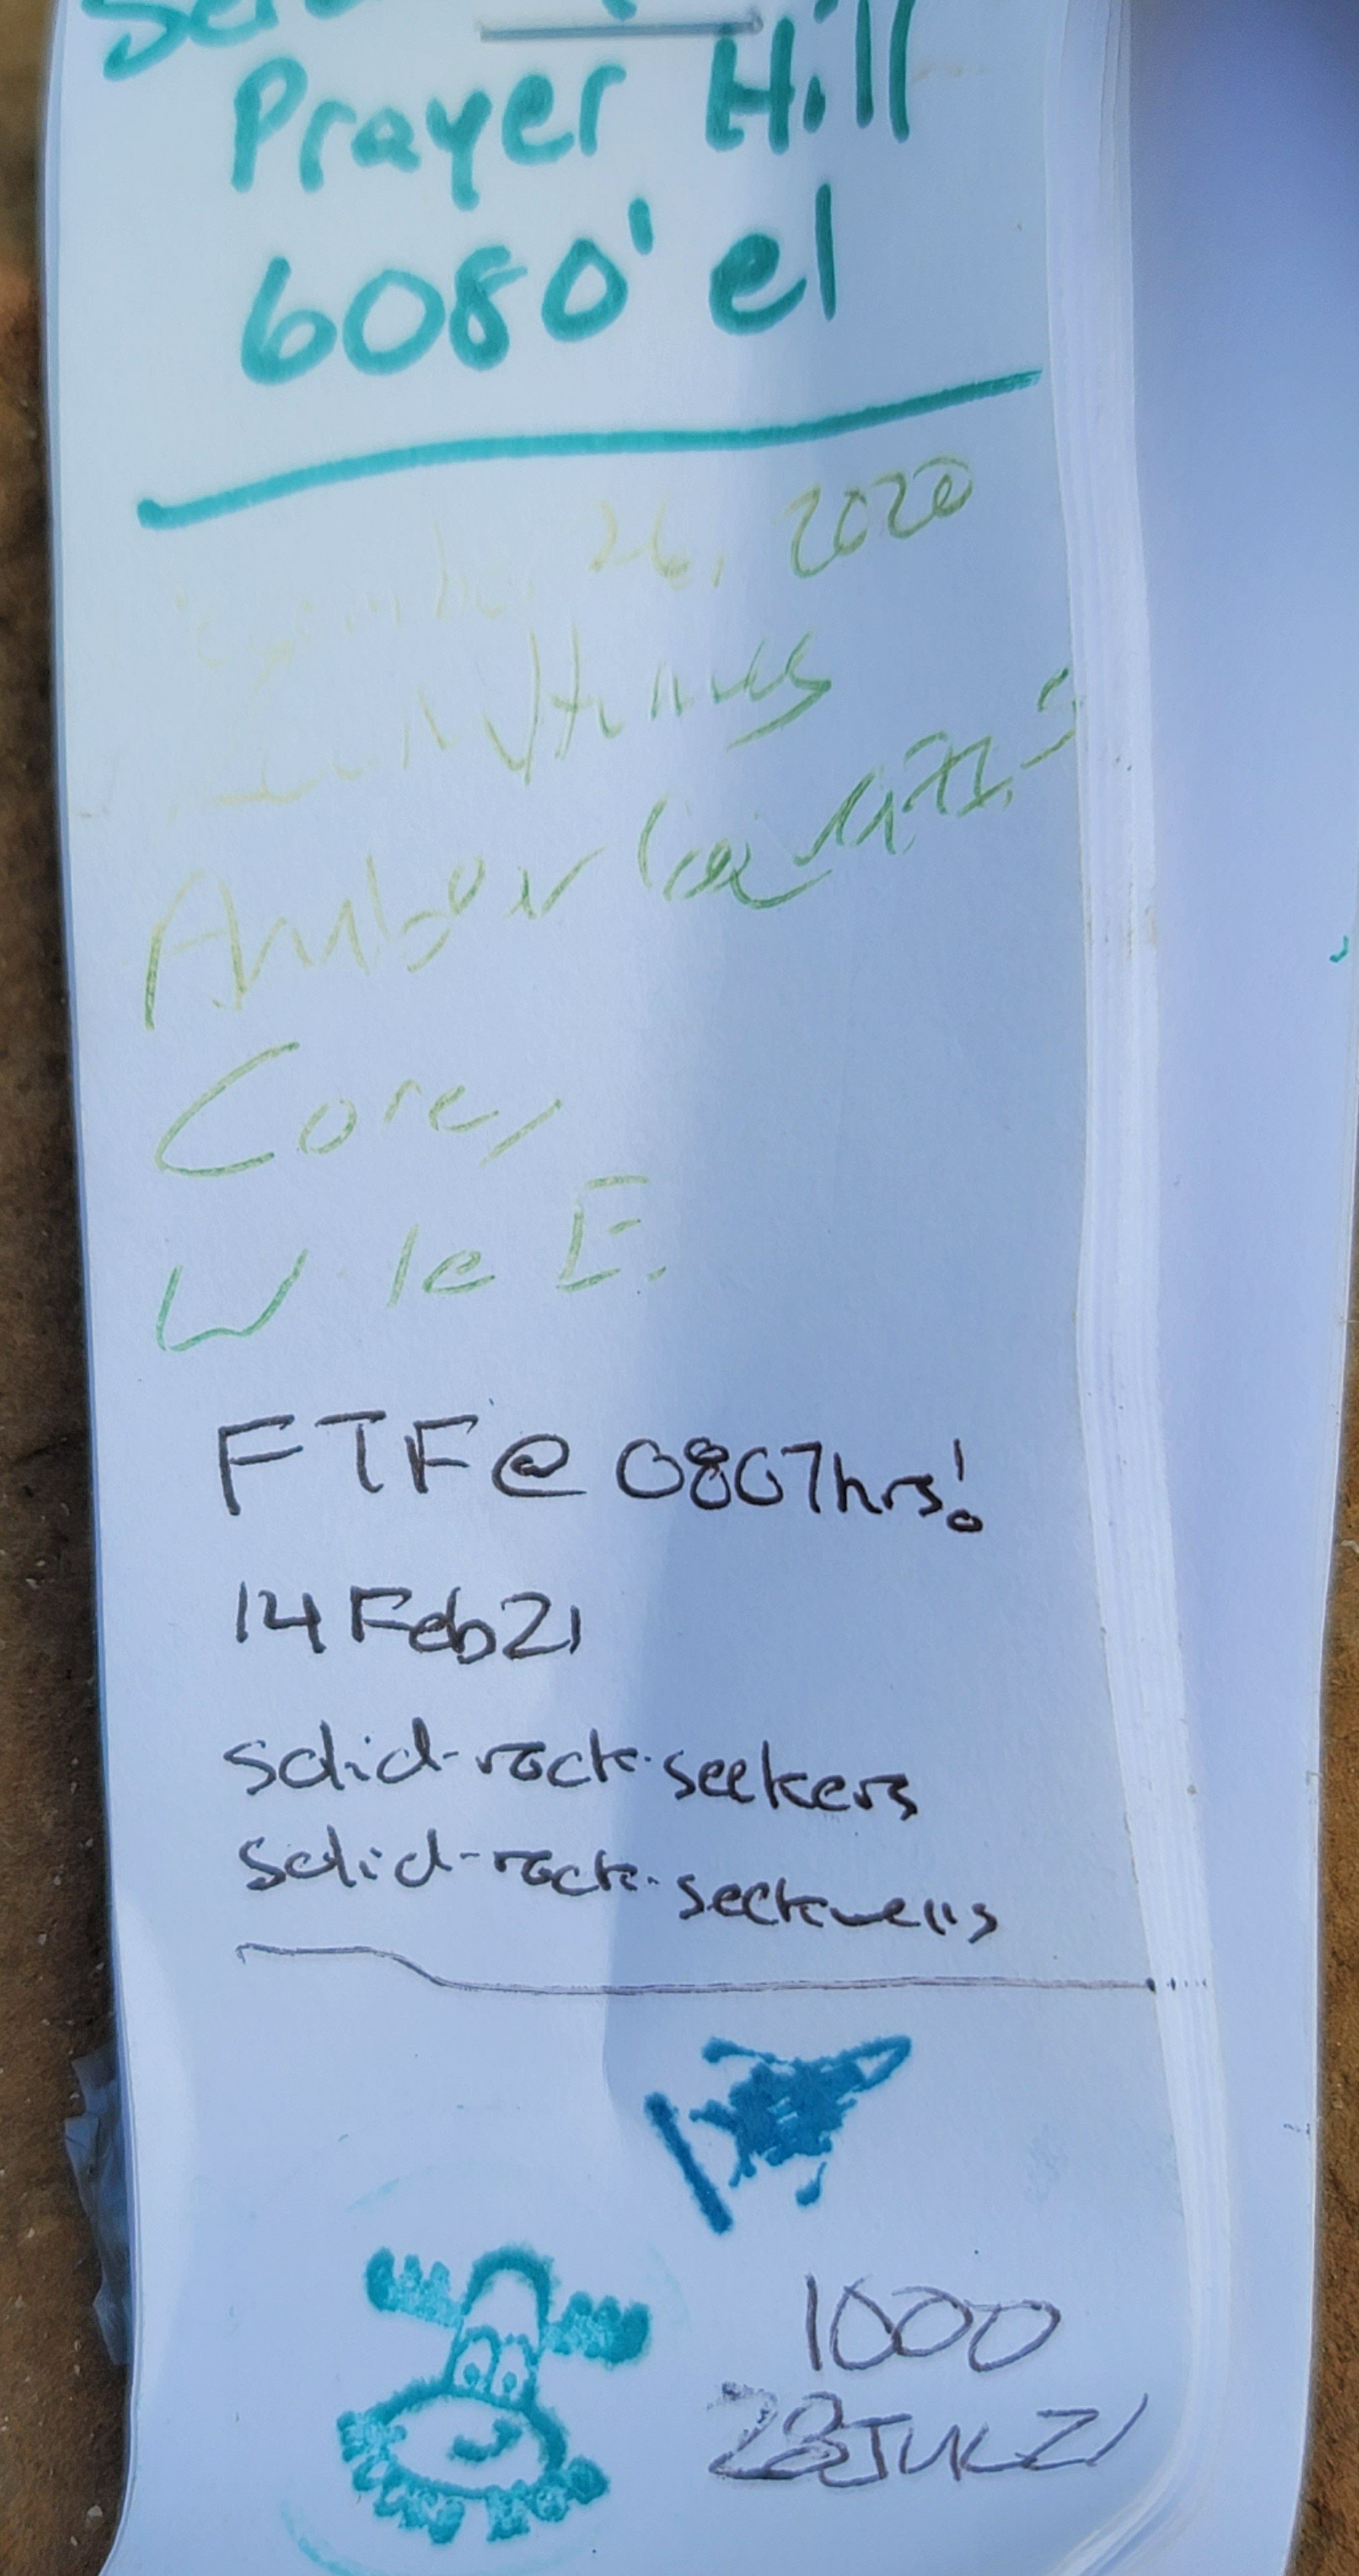 Prayer Hill
6080' el
26, 2020
Amber
Corey
Wile E.
FTF@0807hrs!
14Feb21
solid-rock-seekers
solid-rock-seekwells
1000
28JUL21